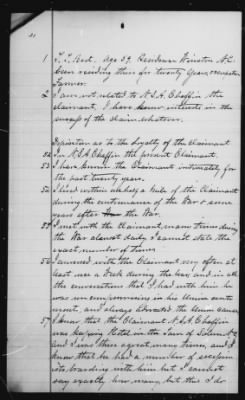 1 Age 59. Residence Winston N.C.
been residing there for twenty years,
Farmer.
2 I am not related to N.S.A. Chaffin the
claimant, I have know interest in the
success of the claim whatever.
Deposition as to the loyalty of the Claimant
52 N.S.A. Chaffin the present Claimant.
53 I have known the Claimant intimately for
the last twenty years.
54 I lived within one half a mile of the Claimant
during the continuance of the War & some
years after the War.
55 I met with the Claimant many times during
the War almost daily, I cannot state the
exact number of times.
56 I conversed with the Claimant very often at
least once a week during the war, and in all
the conversations that I had with him he
was uncompromising in his Union senti-
ment, and always advocated the Union cause.
57 I know that the Claimant N.S.A. Chaffin
was keeping Hotel in the Town of Salem N.C.
and I was there a great many times, and I
know that he had a number of
boarding with him but I cannot
say exactly how many, but this I do